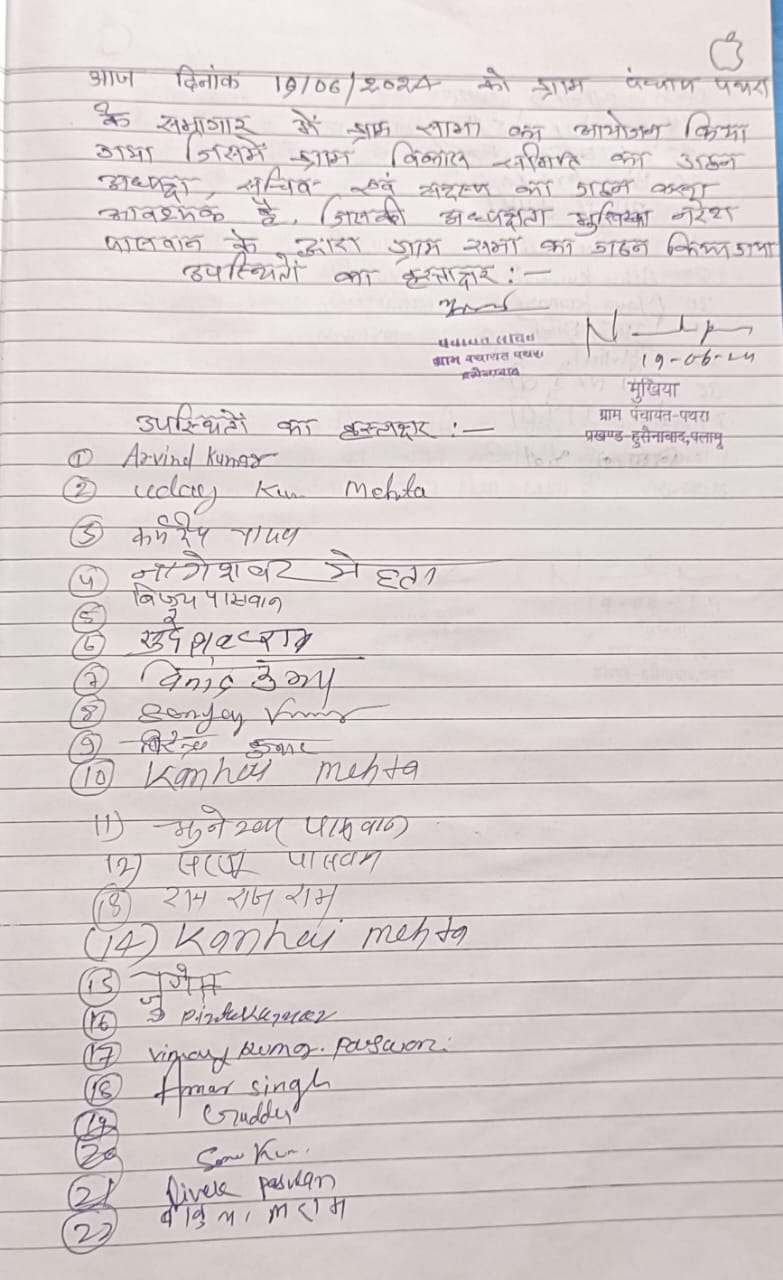 आज दिनांक 19/06/2024 को ग्राम पंचायत पथरा
के सभागार में ग्राम सभा का आयोजन किया
गया जिसमें ग्राम विकास समिति का गठन
अध्यक्ष, सचिव एवं सदस्य का गठन करना
आवश्यक है, जिसकी अध्यक्षता मुखिया नरेश
पासवान के द्वारा ग्राम सभा का गठन किया गया
उपस्थितों का हस्ताक्षर : –
पंचायत सचिव
ग्राम पंचायत पथरा
हुसैनाबाद
19-06-24
मुखिया
ग्राम पंचायत-पथरा
प्रखण्ड-हुसैनाबाद, पलामू
उपस्थितों का हस्ताक्षर : –
① Arvind Kumar
② Uday Kum Mehta
③ यादव
④ नागेश्वर मेहता
⑤ विजय पासवान
⑥
⑦ विनोद
⑧ Sanjay Kumar
⑨ विरेन्द्र कुमार
⑩ Kanhai mehta
11) पासवान
12) पासवान
⑬ राम राज राम
(14) Kanhai mehta
⑮
⑯ Pintu Kumar
⑰ Vinay Kumar Paswan
⑱ Amar singh
⑲ Guddu
⑳ Sonu Kum.
㉑ Paswan
㉒